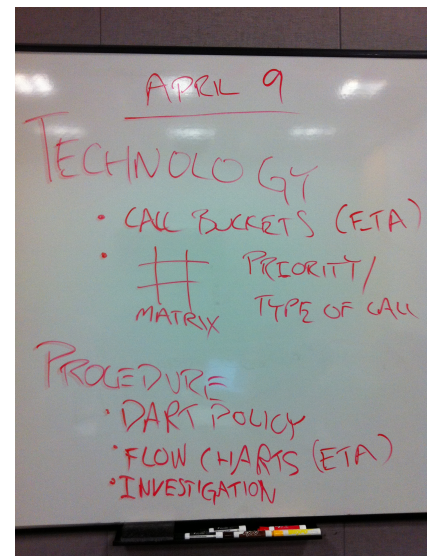 APRIL 9
TECHNOLOGY
• CALL BUCKETS (ETA)
• MATRIX PRIORITY/
TYPE OF CALL
PROCEDURE
• DART POLICY
• FLOW CHARTS (ETA)
• INVESTIGATION